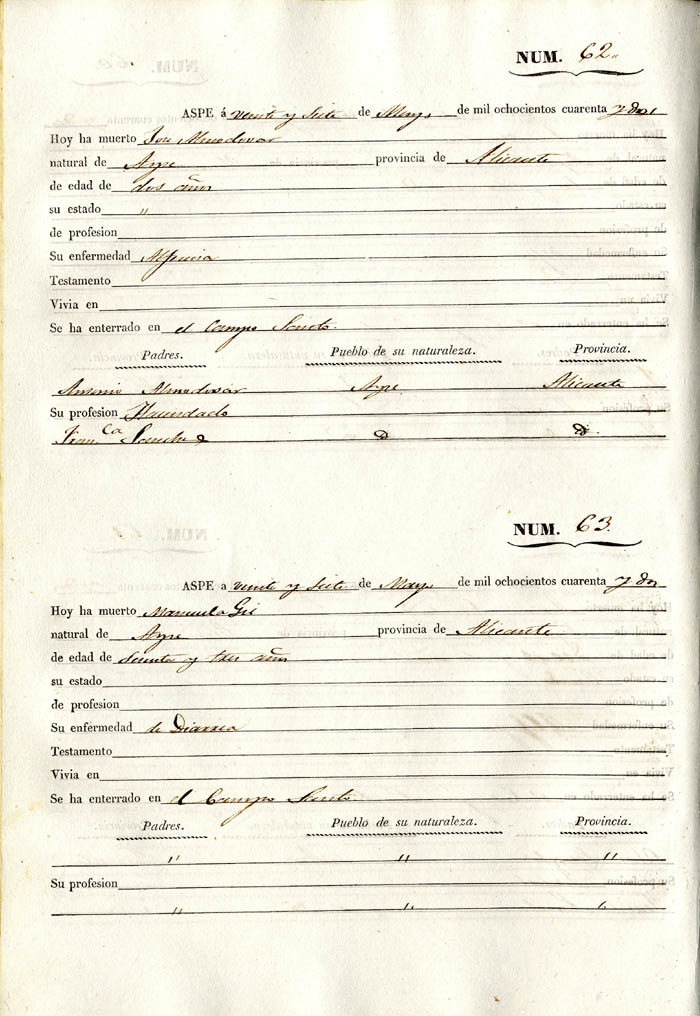 NUM. 62
ASPE á veinte y siete de Mayo de mil ochocientos cuarenta y dos
Hoy ha muerto Jose Almodovar
natural de Aspe provincia de Alicante
de edad de dos años
su estado "
de profesion
Su enfermedad
Testamento
Vivia en
Se ha enterrado en el Campo Santo.
Padres. Pueblo de su naturaleza. Provincia.
Antonio Almodovar Aspe Alicante
Su profesion Hacendado
Fran.ca Sanchez D D.
NUM. 63.
ASPE a veinte y siete de Mayo de mil ochocientos cuarenta y dos
Hoy ha muerto Manuela Gil
natural de Aspe provincia de Alicante
de edad de setenta y tres años
su estado
de profesion
Su enfermedad de Diarrea
Testamento
Vivia en
Se ha enterrado en el Campo Santo.
Padres. Pueblo de su naturaleza. Provincia.
" " "
Su profesion
" " "